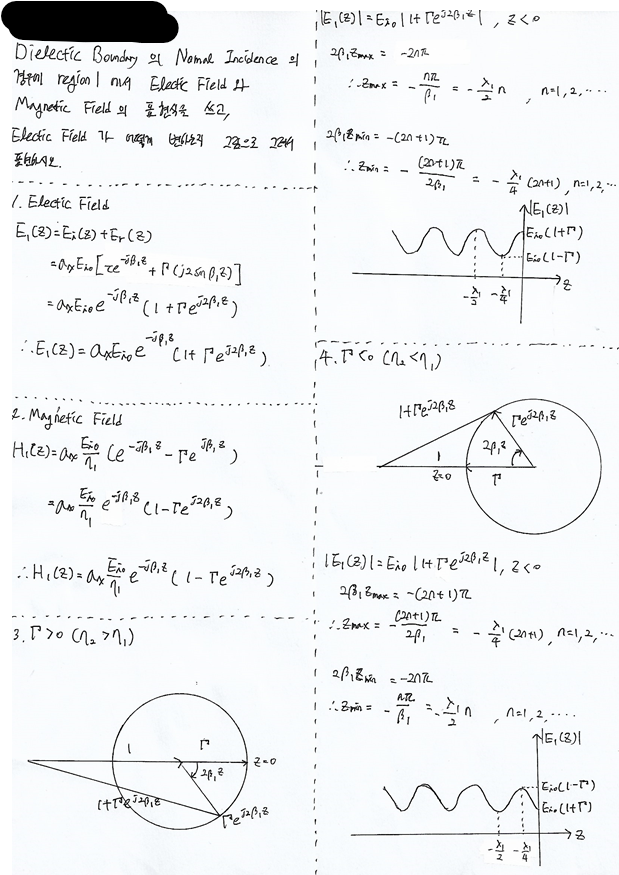 Dielectic Boundary 의 Nomal Incidence 의
경우에 region 1 에서 Electic Field 와
Magnetic Field 의 표현식을 쓰고,
Electic Field 가 어떻게 변하는지 그림으로 그려서
표현하시오.
1. Electic Field
E₁(z)=Eᵢ(z)+Eᵣ(z)
=aₓEᵢ₀[τe^{-jβ₁z}+Γ(j2sinβ₁z)]
=aₓEᵢ₀e^{-jβ₁z}(1+Γe^{j2β₁z})
∴E₁(z)=aₓEᵢ₀e^{-jβ₁z}(1+Γe^{j2β₁z})
2. Magnetic Field
H₁(z)=aₓ Eᵢ₀/η₁ (e^{-jβ₁z}-Γe^{jβ₁z})
=aₓ Eᵢ₀/η₁ e^{-jβ₁z}(1-Γe^{j2β₁z})
∴H₁(z)=aₓ Eᵢ₀/η₁ e^{-jβ₁z}(1-Γe^{j2β₁z})
3. Γ>0 (η₂>η₁)
1 Γ
z=0
2β₁z
1+Γe^{j2β₁z}
Γe^{j2β₁z}
|E₁(z)|=Eᵢ₀|1+Γe^{j2β₁z}|, z<0
2β₁zmax = -2nπ
∴zmax = -nπ/β₁ = -λ₁/2 n , n=1,2,...
2β₁zmin = -(2n+1)π
∴zmin = -(2n+1)π/2β₁ = -λ₁/4 (2n+1), n=1,2,...
|E₁(z)|
Eᵢ₀(1+Γ)
Eᵢ₀(1-Γ)
z
-λ₁/2 -λ₁/4
4. Γ<0 (η₂<η₁)
1+Γe^{j2β₁z}
Γe^{j2β₁z}
2β₁z
1
z=0
Γ
|E₁(z)|=Eᵢ₀|1+Γe^{j2β₁z}|, z<0
2β₁zmax = -(2n+1)π
∴zmax = -(2n+1)π/2β₁ = -λ₁/4 (2n+1), n=1,2,...
2β₁zmin = -2nπ
∴zmin = -nπ/β₁ = -λ₁/2 n , n=1,2,....
|E₁(z)|
Eᵢ₀(1-Γ)
Eᵢ₀(1+Γ)
z
-λ₁/2 -λ₁/4